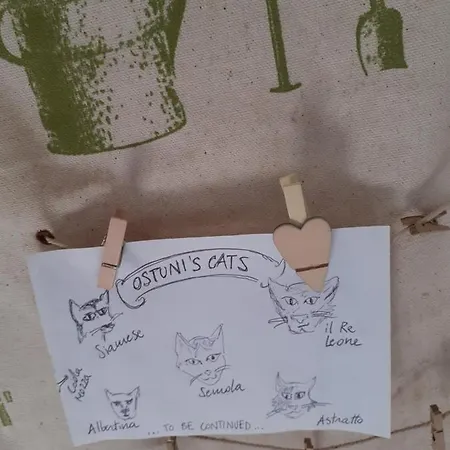 OSTUNI'S CATS
Siamese
il Re
Leone
Semola
Albertina
... TO BE CONTINUED ...
Astratto